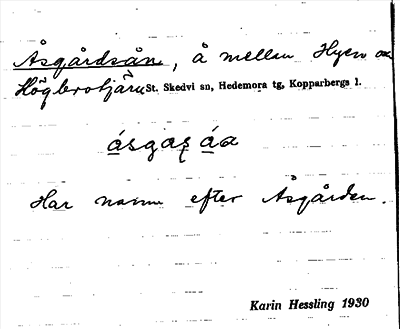 Åsgårdsån, å mellan Hyen o
Högbrotjärn St. Skedvi sn, Hedemora tg, Kopparbergs l.
Har namn efter Åsgården.
Karin Hessling 1930